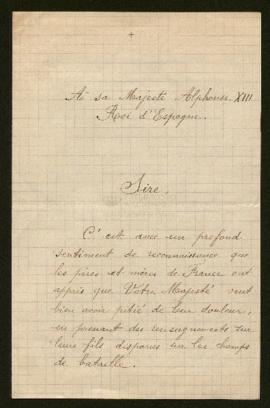 A sa Majesté Alphonse XIII
Roi d'Espagne.
Sire,
C'est avec un profond
sentiment de reconnaissance que
les pères et mères de France ont
appris que Votre Majesté veut
bien avoir pitié de leur douleur,
en prenant des renseignements sur
leurs fils disparus sur les champs
de bataille.